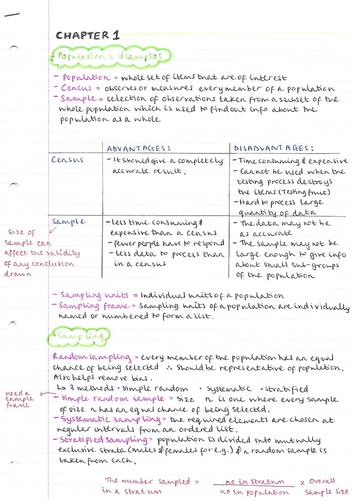 CHAPTER 1
Populations & Samples
- Population = whole set of items that are of interest
- Census = observes or measures every member of a population
- Sample = selection of observations taken from a subset of the
whole population which is used to find out info about the
population as a whole
ADVANTAGES: DISADVANTAGES:
Census
- It should give a completely
accurate result.
- Time consuming & expensive
- Cannot be used when the
testing process destroys
the items (testing fruit)
- Hard to process large
quantity of data
Sample
- less time consuming &
expensive than a census
- fewer people have to respond
- less data to process than
in a census
- The data may not be
as accurate
- The sample may not be
large enough to give info
about small sub-groups
of the population
Size of
sample can
affect the validity
of any conclusion
drawn
- Sampling units = individual units of a population
- Sampling frame = sampling units of a population are individually
named or numbered to form a list.
Sampling
Random sampling = every member of the population has an equal
chance of being selected ∴ should be representative of population.
Also helps remove bias.
↳ 3 methods · simple random · systematic · stratified
need a
sample
frame
- Simple random sample = size n is one where every sample
of size n has an equal chance of being selected.
- Systematic sampling = the required elements are chosen at
regular intervals from an ordered list.
- Stratified sampling = population is divided into mutually
exclusive strata (males & females for e.g.) & a random sample is
taken from each.
The number sampled = no in stratum x Overall
in a stratum no in population sample size